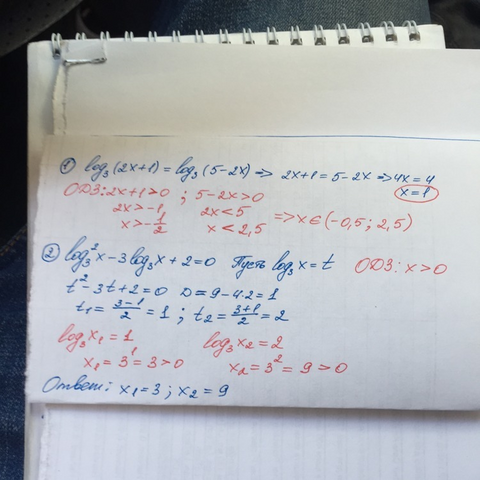 ① log₃(2x+1) = log₃(5-2x) => 2x+1 = 5-2x => 4x = 4
x=1
ОДЗ: 2x+1>0 ; 5-2x>0
2x>-1 2x<5
x>-1/2 x<2,5 => x∈(-0,5; 2,5)
② log₃²x - 3log₃x + 2 = 0 Пусть log₃x = t ОДЗ: x>0
t² - 3t + 2 = 0 D = 9 - 4·2 = 1
t₁ = (3-1)/2 = 1 ; t₂ = (3+1)/2 = 2
log₃x₁ = 1 log₃x₂ = 2
x₁ = 3¹ = 3 > 0 x₂ = 3² = 9 > 0
Ответ: x₁ = 3 ; x₂ = 9